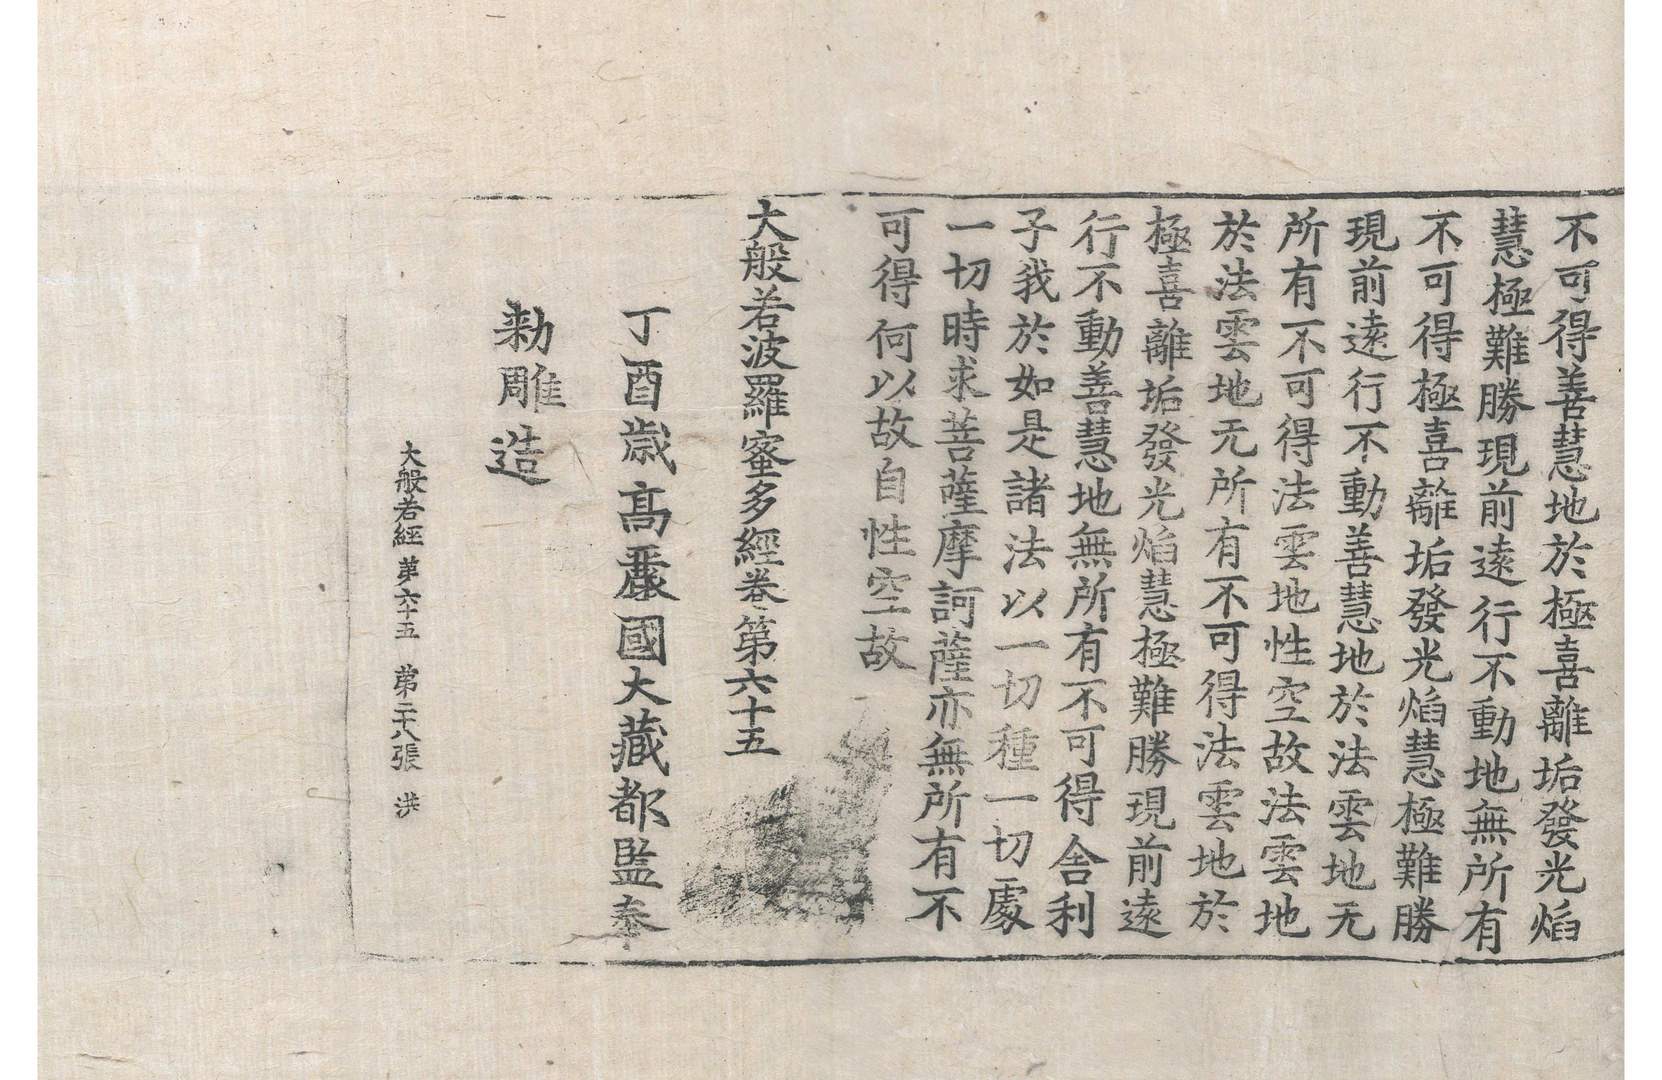 不可得善慧地於極喜離垢發光焰
慧極難勝現前遠行不動地無所有
不可得極喜離垢發光焰慧極難勝
現前遠行不動善慧地於法雲地无
所有不可得法雲地性空故法雲地
於法雲地无所有不可得法雲地於
極喜離垢發光焰慧極難勝現前遠
行不動善慧地無所有不可得舍利
子我於如是諸法以一切種一切處
一切時求菩薩摩訶薩亦無所有不
可得何以故自性空故
大般若波羅蜜多經卷第六十五
丁酉歲高麗國大藏都監奉
勑雕造
大般若經 第六十五 第二十八張 洪